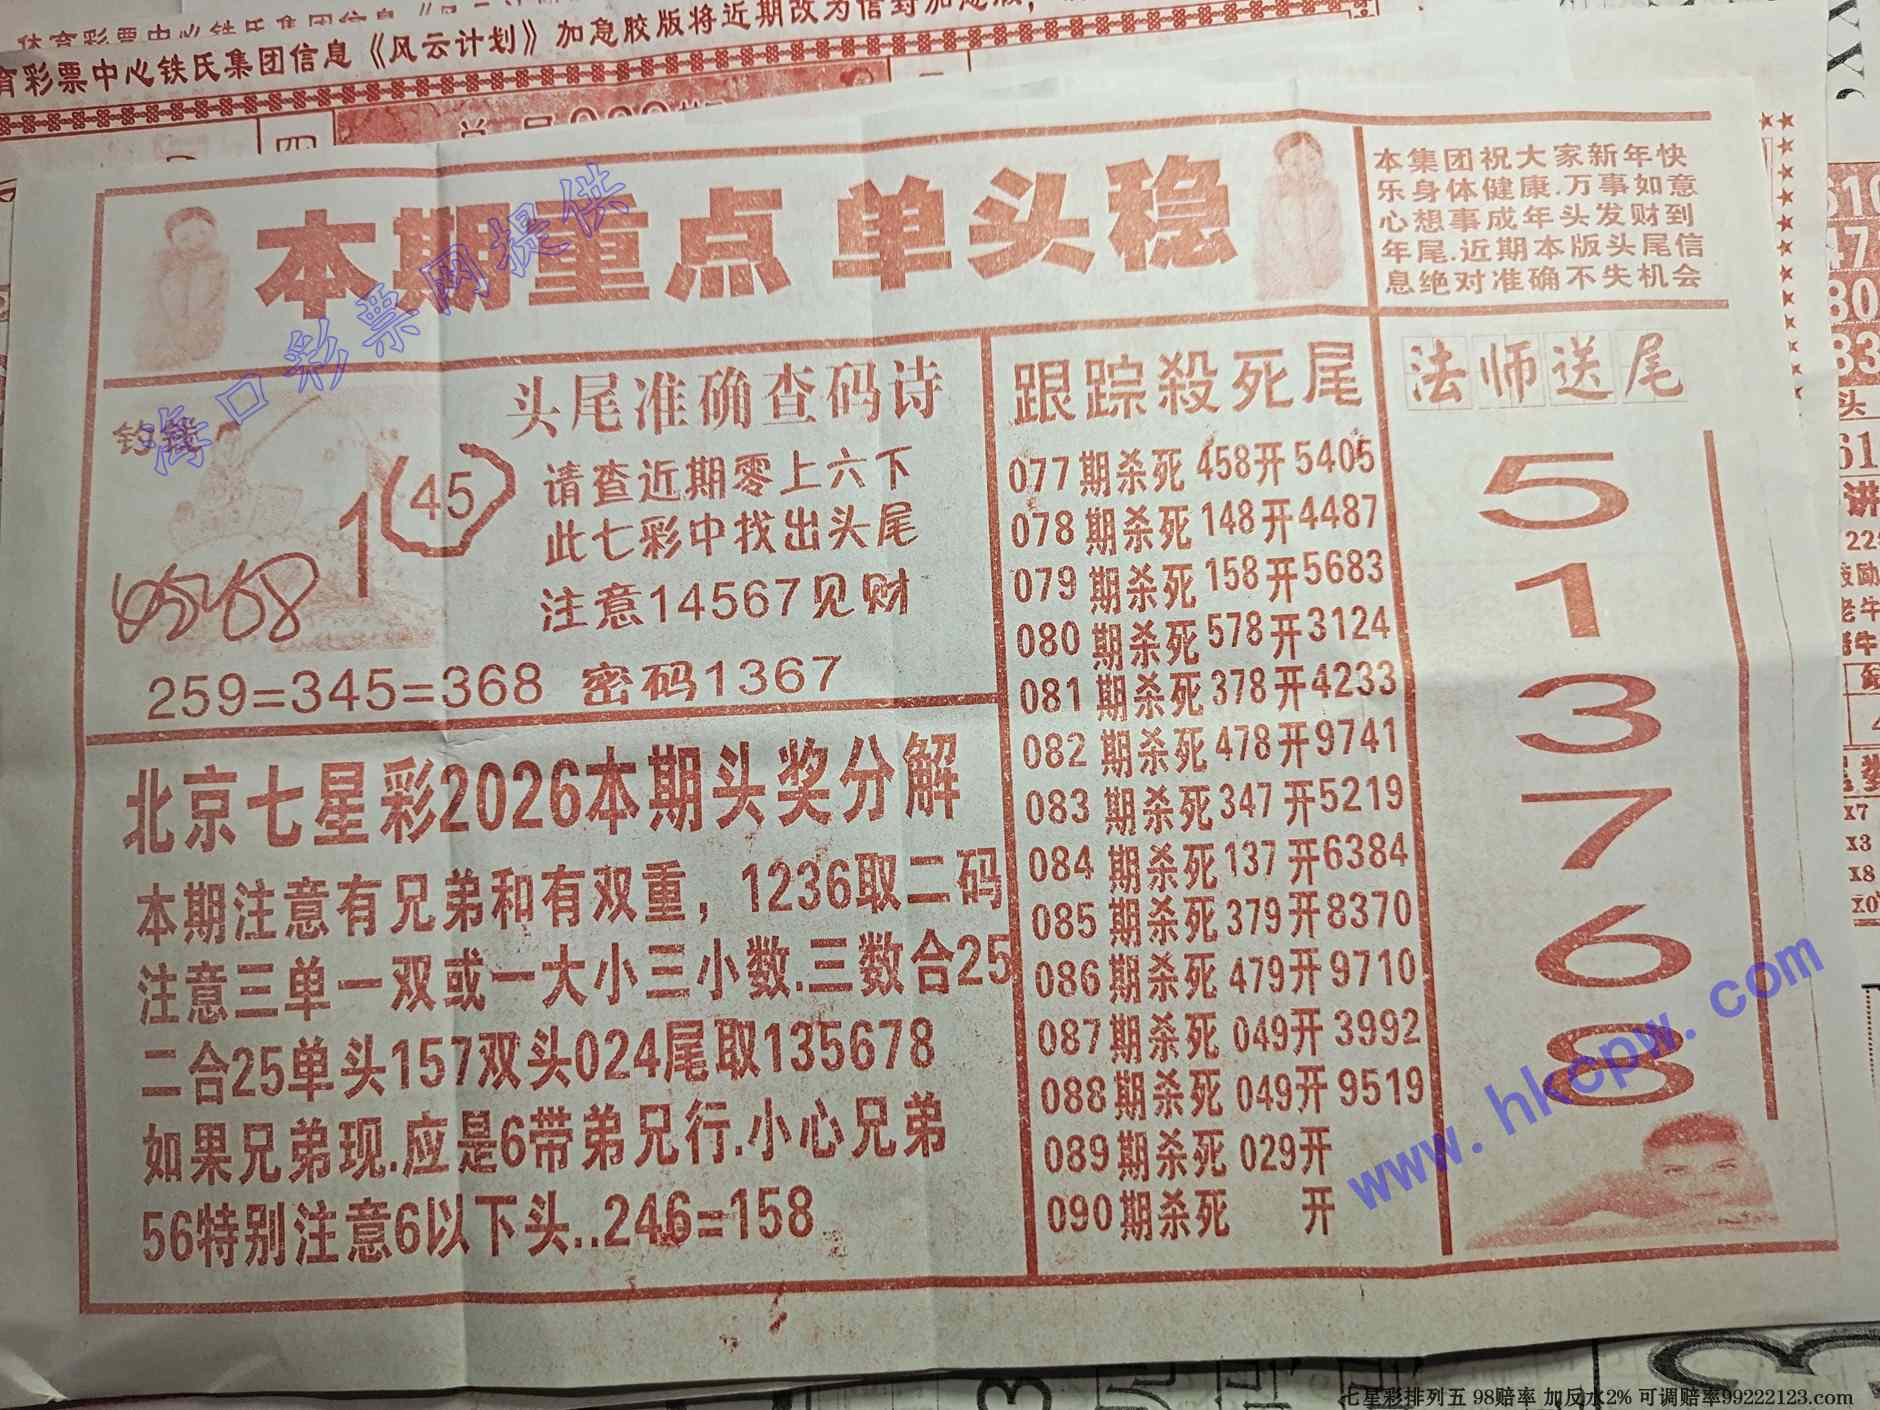 体育彩票中心铁氏集团信息
育彩票中心铁氏集团信息《风云计划》加急胶版将近期改为信封加急版,
四
本期重点 单头稳
本集团祝大家新年快
乐身体健康.万事如意
心想事成年头发财到
年尾.近期本版头尾信
息绝对准确不失机会
海口彩票网提供
头尾准确查码诗
请查近期零上六下
此七彩中找出头尾
注意14567见财
1
45
259=345=368 密码1367
北京七星彩2026本期头奖分解
本期注意有兄弟和有双重，1236取二码
注意三单一双或一大小三小数.三数合25
二合25单头157双头024尾取135678
如果兄弟现.应是6带弟兄行.小心兄弟
56特别注意6以下头..246=158
跟踪殺死尾
077期杀死 458开5405
078期杀死 148开4487
079期杀死 158开5683
080期杀死 578开3124
081期杀死 378开4233
082期杀死 478开9741
083期杀死 347开5219
084期杀死 137开6384
085期杀死 379开8370
086期杀死 479开9710
087期杀死 049开3992
088期杀死 049开9519
089期杀死 029开
090期杀死 开
法师送尾
5
1
3
7
6
8
www.hkcpw.com
七星彩排列五 98赔率 加反水2% 可调赔率99222123.com